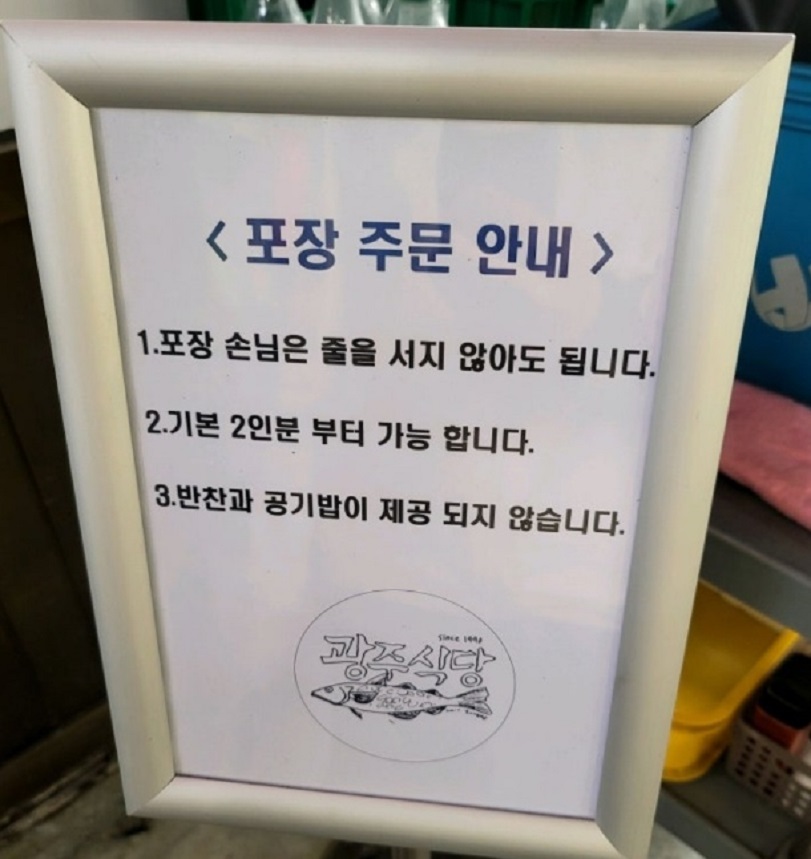 < 포장 주문 안내 >
1.포장 손님은 줄을 서지 않아도 됩니다.
2.기본 2인분 부터 가능 합니다.
3.반찬과 공기밥이 제공 되지 않습니다.
since
광주식당